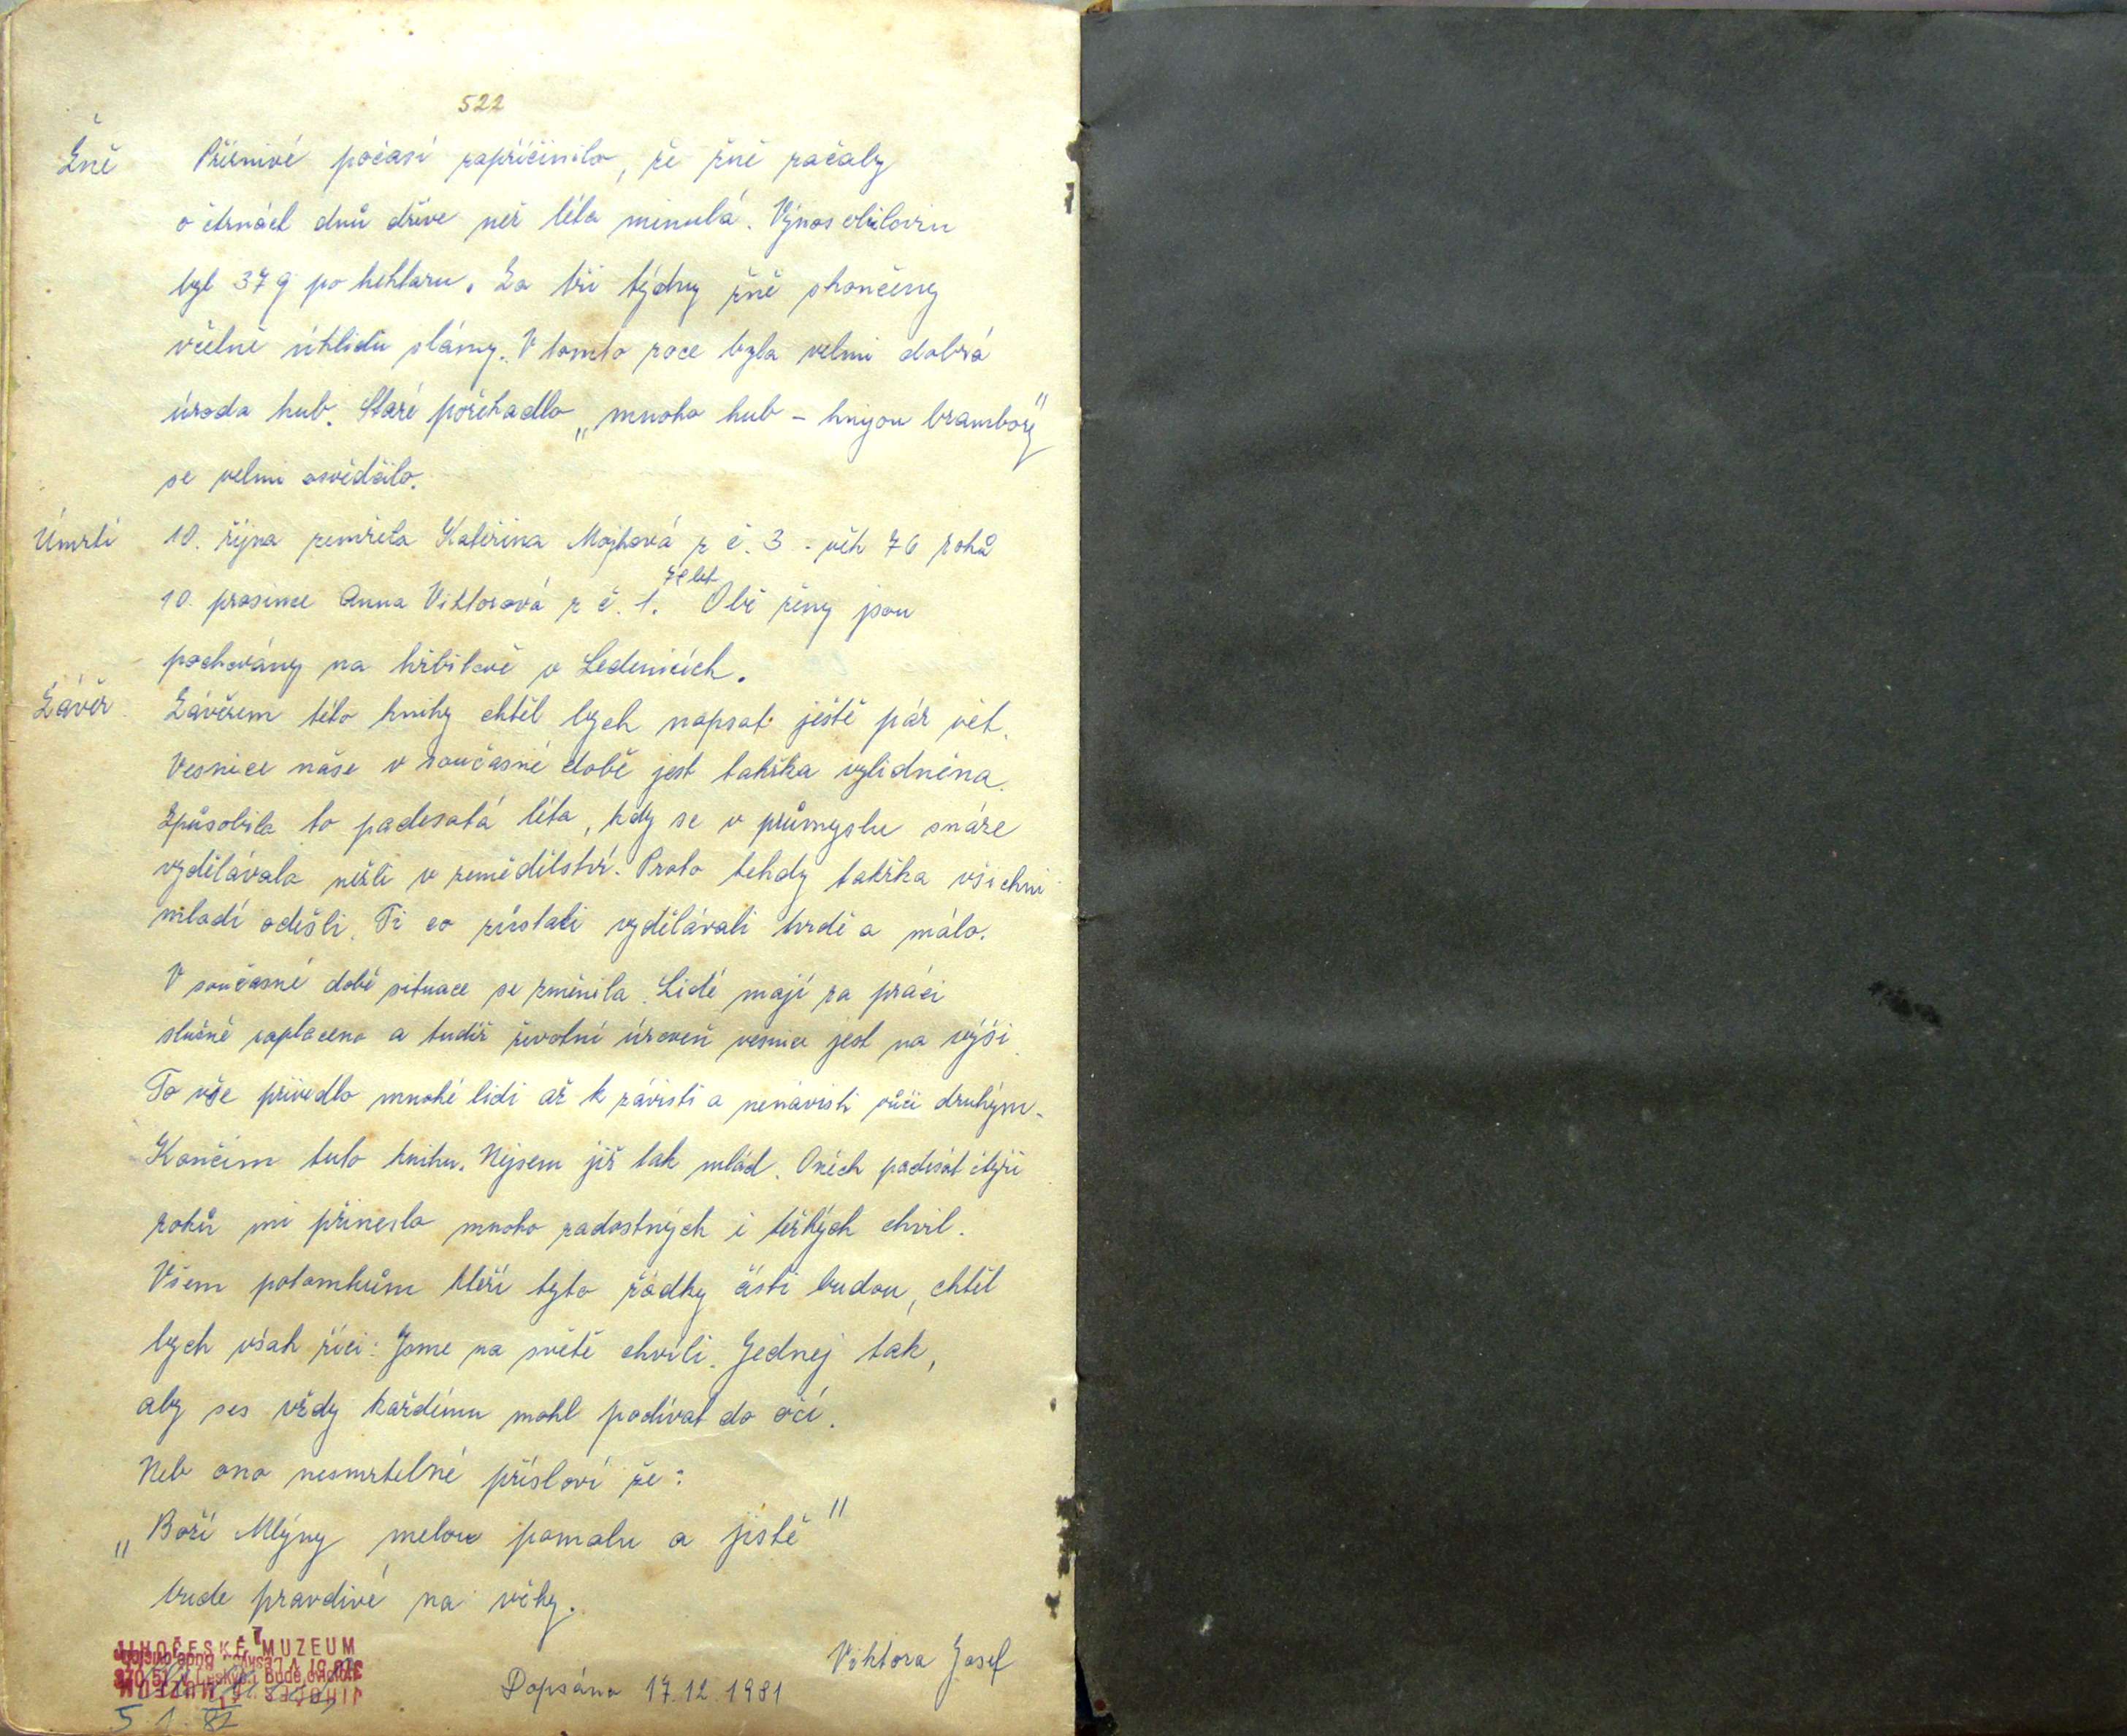 522
Žně Příznivé počasí zapříčinilo, že žně začaly
o čtrnáct dnů dříve než léta minulá. Výnos obilovin
byl 37 q po hektaru. Za tři týdny žně skončeny
včetně úklidu slámy. V tomto roce byla velmi dobrá
úroda hub. Staré pořekadlo „mnoho hub - hnijou brambory"
se velmi osvědčilo.
Úmrtí 10. října zemřela Kateřina Mojková z č. 3 - věk 76 roků
10. prosince Anna Viktorová z č. 1. Obě ženy jsou
pochovány na hřbitově v Ledenicích.
Závěr Závěrem této knihy chtěl bych napsat ještě pár vět.
Vesnice naše v současné době jest takřka vylidněna.
Způsobila to padesátá léta, kdy se v průmyslu snáze
vydělávalo nežli v zemědělství. Proto tehdy takřka všichni
mladí odešli. Ti co zůstali vydělávali tvrdě a málo.
V současné době situace se změnila. Lidé mají za práci
slušně zaplaceno a tudíž životní úroveň vesnice jest na výši.
To vše přivedlo mnohé lidi až k závisti a nenávisti vůči druhým.
Končím tuto knihu. Nejsem již tak mlád. Oněch padesát čtyři
roků mi přineslo mnoho radostných i těžkých chvil.
Všem potomkům kteří tyto řádky čísti budou, chtěl
bych však říci: Jsme na světě chvíli. Jednej tak,
aby ses vždy každému mohl podívat do očí.
Neb ono nesmrtelné přísloví že:
„Boží Mlýny melou pomalu a jistě"
bude pravdivé na věky.
Viktora Josef
Dopsáno 17.12.1981
JIHOČESKÉ MUZEUM
5.1.82